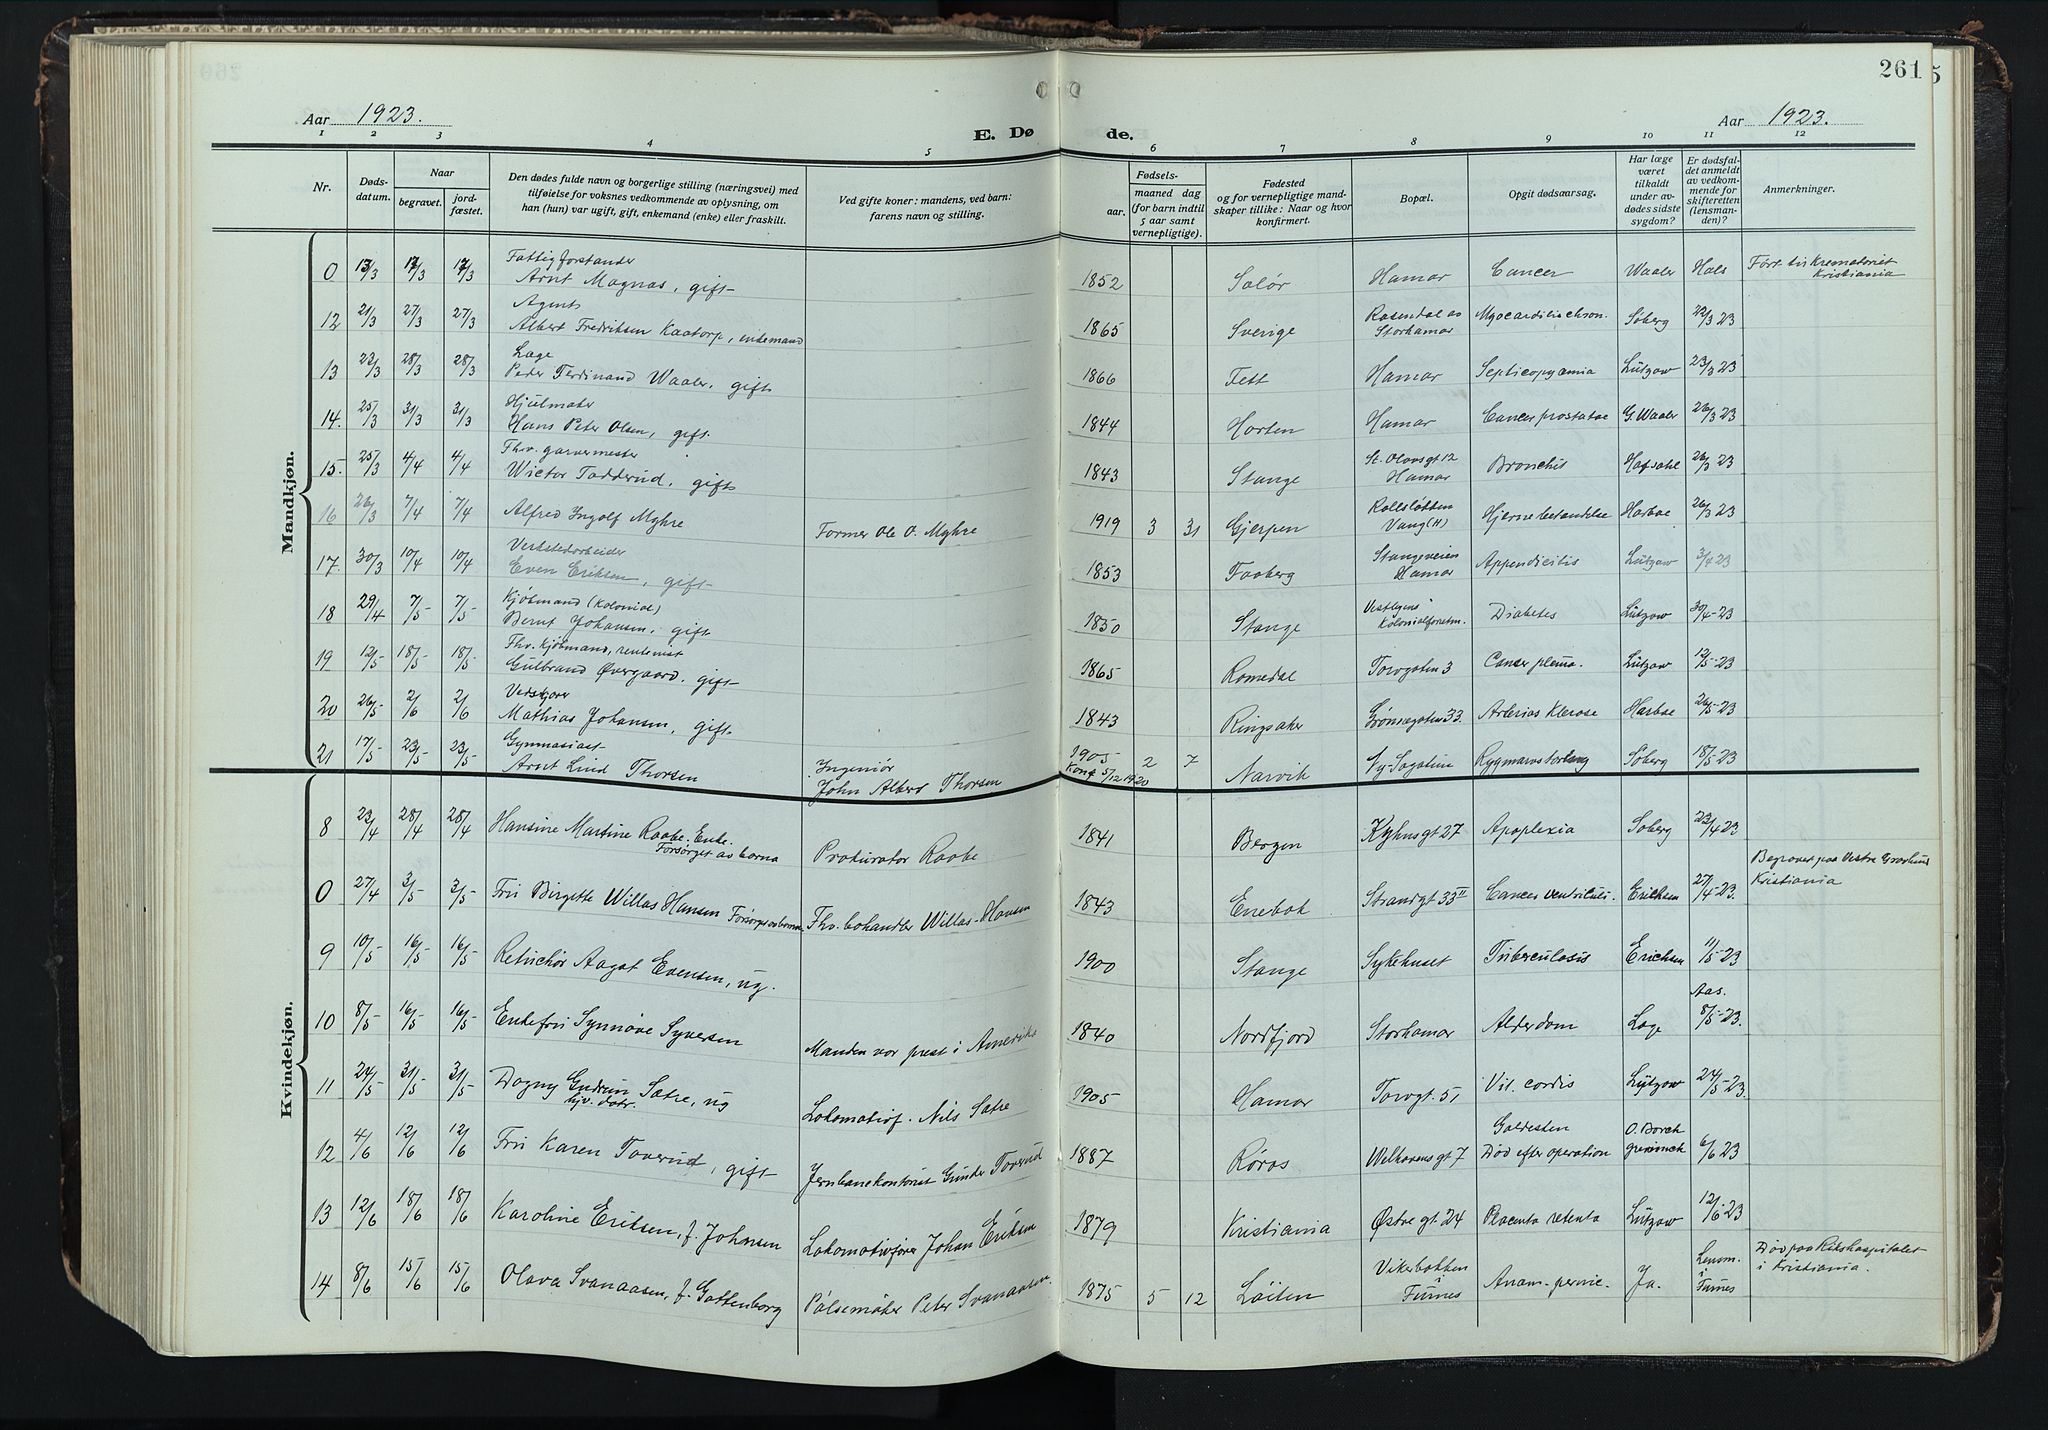 261
5
Aar 1923.
E. Dø
de.
Aar 1923.
1 2 3 4 5 6 7 8 9 10 11 12
Nr.
Døds-
datum.
Naar
begravet.
jord-
fæstet.
Den dødes fulde navn og borgerlige stilling (næringsvei) med
tilføielse for voksnes vedkommende av oplysning, om
han (hun) var ugift, gift, enkemand (enke) eller fraskilt.
Ved gifte koner: mandens, ved barn:
farens navn og stilling.
Fødsels-
aar.
maaned dag
(for barn indtil
5 aar samt
vernepligtige).
Fødested
og for vernepligtige mand-
skaper tillike: Naar og hvor
konfirmert.
Bopæl.
Opgit dødsaarsag.
Har læge
været
tilkaldt
under av-
dødes sidste
sygdom?
Er dødsfal-
det anmeldt
av vedkom-
mende for
skifteretten
(lensman-
den)?
Anmerkninger.
Mandkjøn.
0 13/3 17/3 17/3 Fattigforstander
Arnt Magnas, gift 1852 Solør Hamar Cancer Waaler Hals Ført til krematoriet
Kristiania
12 21/3 27/3 27/3 Agent
Albert Fredriksen Kaatorp, enkemand 1865 Sverige Rosendal av
Storhamar Myocarditis chron. Søberg 22/3 23
13 22/3 28/3 28/3 Læge
Peder Ferdinand Waaler, gift 1866 Fett Hamar Septicopyæmia Lützow 23/3 23
14. 25/3 31/3 31/3 Hjulmaker
Hans Peter Olsen, gift. 1844 Horten Hamar Cancer prostatae G. Waaler 26/3 23
15. 25/3 4/4 4/4 Fhv. garvermester
Wictor Tadderud, gift 1843 Stange St. Olavsgt 12
Hamar Bronchit Hafsahl 26/3 23
16 26/3 7/4 7/4 Alfred Ingolf Myhre Former Ole O. Myhre 1919 3 31 Gjerpen Kolisløkken
Vang (H) Hjernebetændelse Harboe 26/3 23
17. 30/3 10/4 10/4 Verkstedarbeider
Even Eriksen, gift 1853 Faaberg Stangeveien
Hamar Appendicitis Lützow 3/4 23
18 29/4 7/5 7/5 Kjøbmand (Kolonial)
Bernt Johansen, gift 1850 Stange Vestbyens
Kolonialforretn. Diabetes Lützow 30/4-23
19 12/5 18/5 18/5 Fhv. Kjøbmand, rentenist
Gulbrand Øvergaard, gift 1865 Romedal Torvgaten 3 Cancer pleura. Lützow 12/5-23
20 26/5 2/6 2/6 Vedskjører
Mathias Johansen, gift. 1843 Ringsaker Grønnegaten 33. Arterios Klerose Harboe 26/5-23
21 17/5 23/5 23/5 Gymnasiast
Arnt Lind Thorsen Ingeniør
John Albert Thorsen 1905
Konf 3/12 1920 2 7 Narvik Ny-Sagatun Rygmarvstorlang Søberg 18/5-23
Kvindekjøn.
8 23/4 28/4 28/4 Hansine Martine Raabe. Enke.
Forsørget av barna Prokurator Raabe 1841 Bergen Kyhusgt 27 Apoplexia Søberg 23/4 23
0 27/4 3/5 3/5 Fru Birgitte Willas Hansen Forsørget av barna. Fhv. bohandler Willas-Hansen 1843 Enebak Strandgt 33 II Cancer ventriculi. Erichsen 27/4-23. Begravet paa Vestre Gravlund
Kristiania
9 10/5 16/5 16/5 Retuchør Aagot Evensen, ug. 1900 Stange Sykehuset Tuberculosis Erichsen 11/5-23
10 8/5 16/5 16/5 Enkefru Synnøve Syversen Manden var prest i Amerika 1840 Nordfjord Storhamar Alderdom Læge Aas.
8/5-23.
11 24/5 31/5 31/5 Dagny Gudrun Sætre, ug
hjv. datr. Lokomotivf. Nils Sætre 1905 Hamar Torvgt. 51 Vit. cordis Lützow 24/5-23
12 4/6 12/6 12/6 Fru Karen Toverud, gift Jernbanekontorist Gunder Toverud 1887 Røros Welhavensgt 7 Galdesten
Død efter operation O. Borch
grevinck 6/6 23
13 12/6 18/6 18/6 Karoline Eriksen, f. Johnsen Lokomotivfører Johan Eriksen 1879 Kristiania Østregt. 24 Placenta retenta Lützow 12/6-23
14 8/6 15/6 15/6 Olava Svanaasen, f. Gottenborg Pølsemaker Peter Svanaasen 1875 5 12 Løiten Vikerbakken
i
Furnes Anæm. pernic. Ja. Lensm.
i
Furnes Død paa Rikshospitalet
i Kristiania.